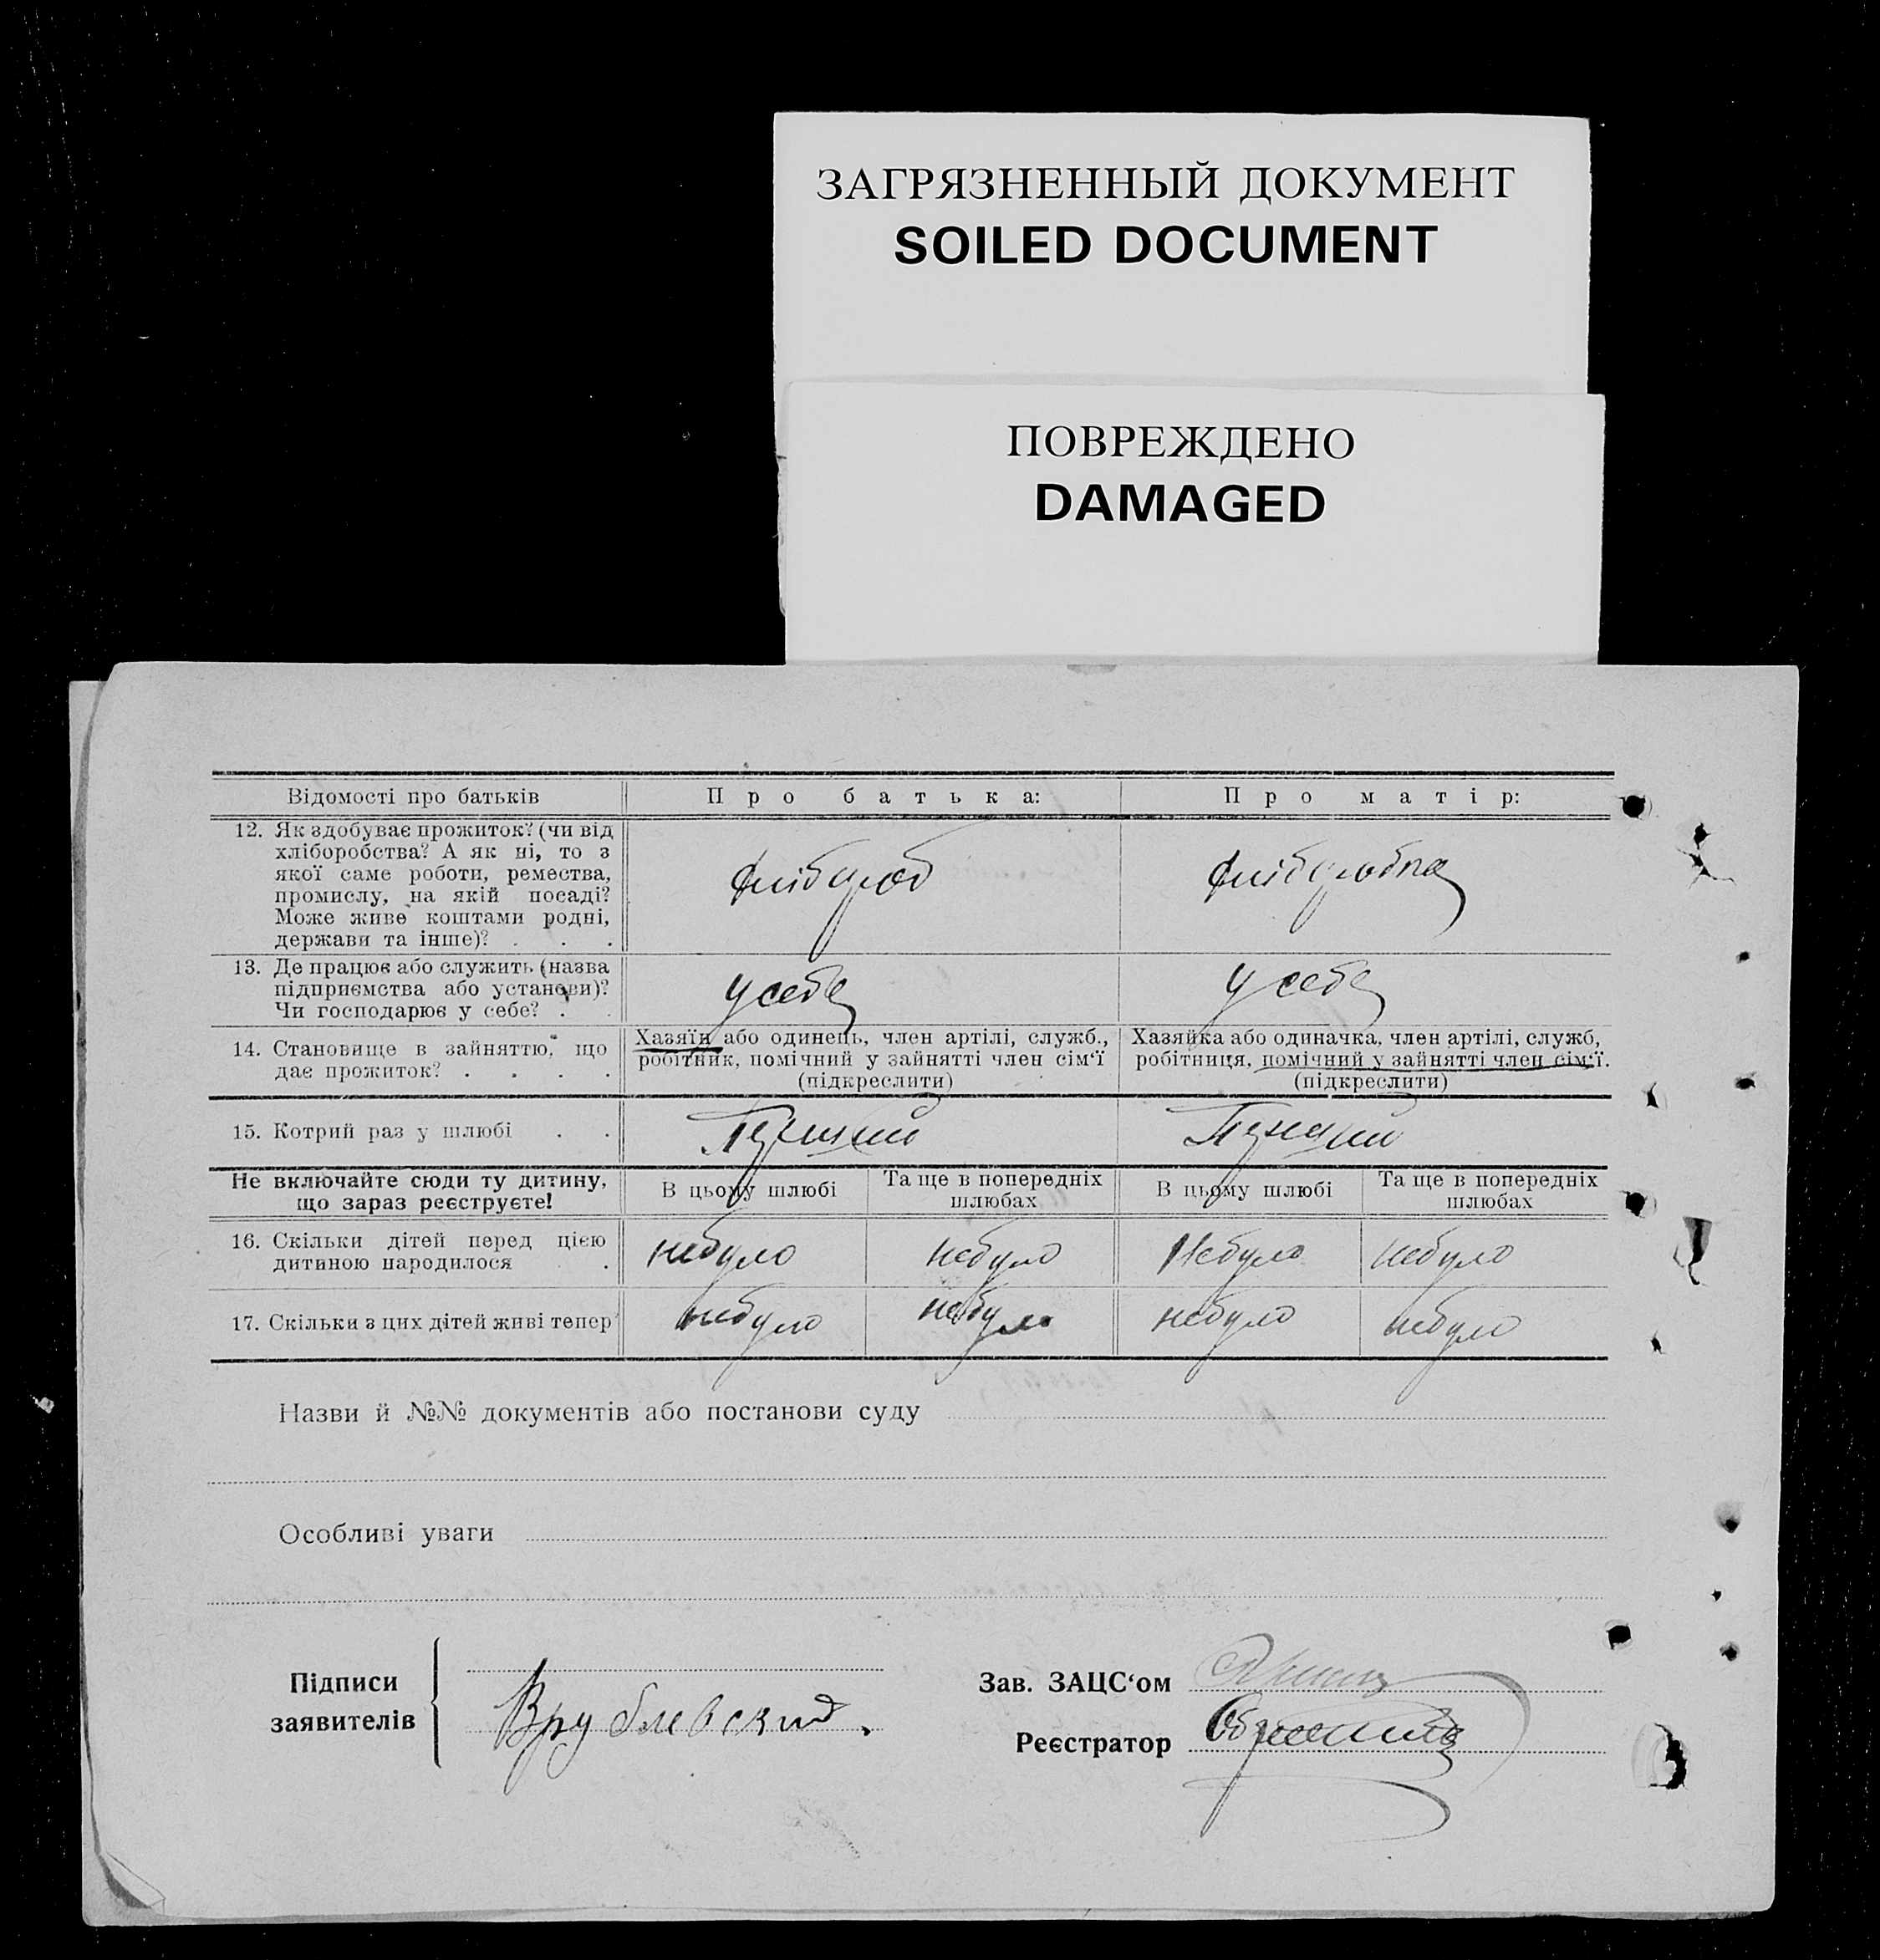 ЗАГРЯЗНЕННЫЙ ДОКУМЕНТ
SOILED DOCUMENT
ПОВРЕЖДЕНО
DAMAGED
Відомості про батьків
Про батька:
Про матір:
12. Як здобуває прожиток? (чи від
хліборобства? А як ні, то з
якої саме роботи, ремества,
промислу, на якій посаді?
Може живе коштами родні,
держави та інше)? . . .
хлібороб
хліборобка
13. Де працює або служить (назва
підприємства або установи)?
Чи господарює у себе? . .
у себе
у себе
14. Становище в зайняттю, що
дає прожиток? . . . .
Хазяїн або одинець, член артілі, служб.,
робітник, помічний у зайнятті член сім‘ї
(підкреслити)
Хазяйка або одиначка, член артілі, служб,
робітниця, помічний у зайнятті член сім‘ї.
(підкреслити)
15. Котрий раз у шлюбі . .
Перший
Перший
Не включайте сюди ту дитину,
що зараз реєструєте!
В цьому шлюбі
Та ще в попередніх
шлюбах
В цьому шлюбі
Та ще в попередніх
шлюбах
16. Скільки дітей перед цією
дитиною народилося .
небуло
небуло
Небуло
небуло
17. Скільки з цих дітей живі тепер?
небуло
небуло
небуло
небуло
Назви й №№ документів або постанови суду
Особливі уваги
Підписи
заявителів
Врублевский.
Зав. ЗАЦС‘ом
Реєстратор